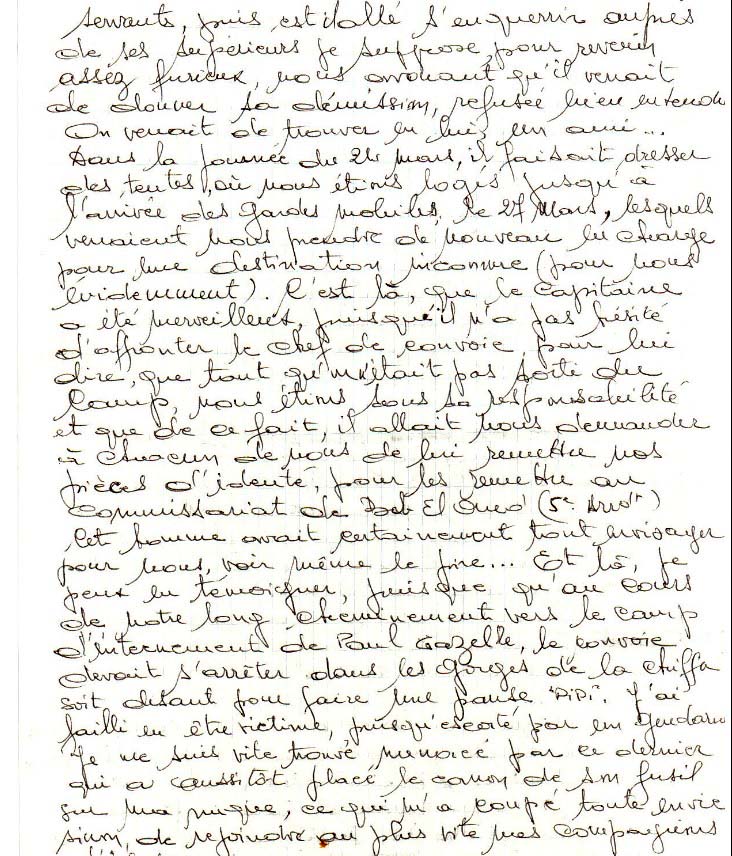 servants, puis est allé s'enquerrir auprès
de ses supérieurs je suppose, pour revenir
assez furieux, nous avouant qu'il venait
de donner sa démission, refusée bien entendu
On venait de trouver en lui, un ami...
Dans la journée du 24 mars, il faisait dresser
des tentes, où nous étions logés jusqu'à
l'arrivée des gardes mobiles, le 27 Mars, lesquels
venaient nous prendre de nouveau en charge
pour une destination inconnue (pour nous
évidemment). C'est là, que le Capitaine
a été merveilleux, puisqu'il n'a pas hésité
d'affronter le chef de convoie, pour lui
dire, que tant qu'on était pas sortis du
Camp, nous étions sous sa responsabilité
et que de ce fait, il allait nous demander
à chacun de nous de lui remettre nos
pièces d'identé, pour les remettre au
Commissariat de Bab El Oued (5e Arrdt)
Cet homme avait certainement tout envisager
pour nous, voir même le pire... Et là, je
peux en témoigner, puisque qu'au cours
de notre long cheminement vers le camp
d'internement de Paul Cazelle, le convoie
devait s'arrêter dans les Gorges de la chiffa
soit disant pour faire une pause "PiPi". J'ai
failli en être victime, puisqu'escorté par un Gendarm
Je me suis vite trouvé menacé par ce dernier
qui a aussitôt placé le canon de son fusil
sur ma nuque, ce qui m'a coupé toute envie
sinon, de rejoindre au plus vite mes compagnons